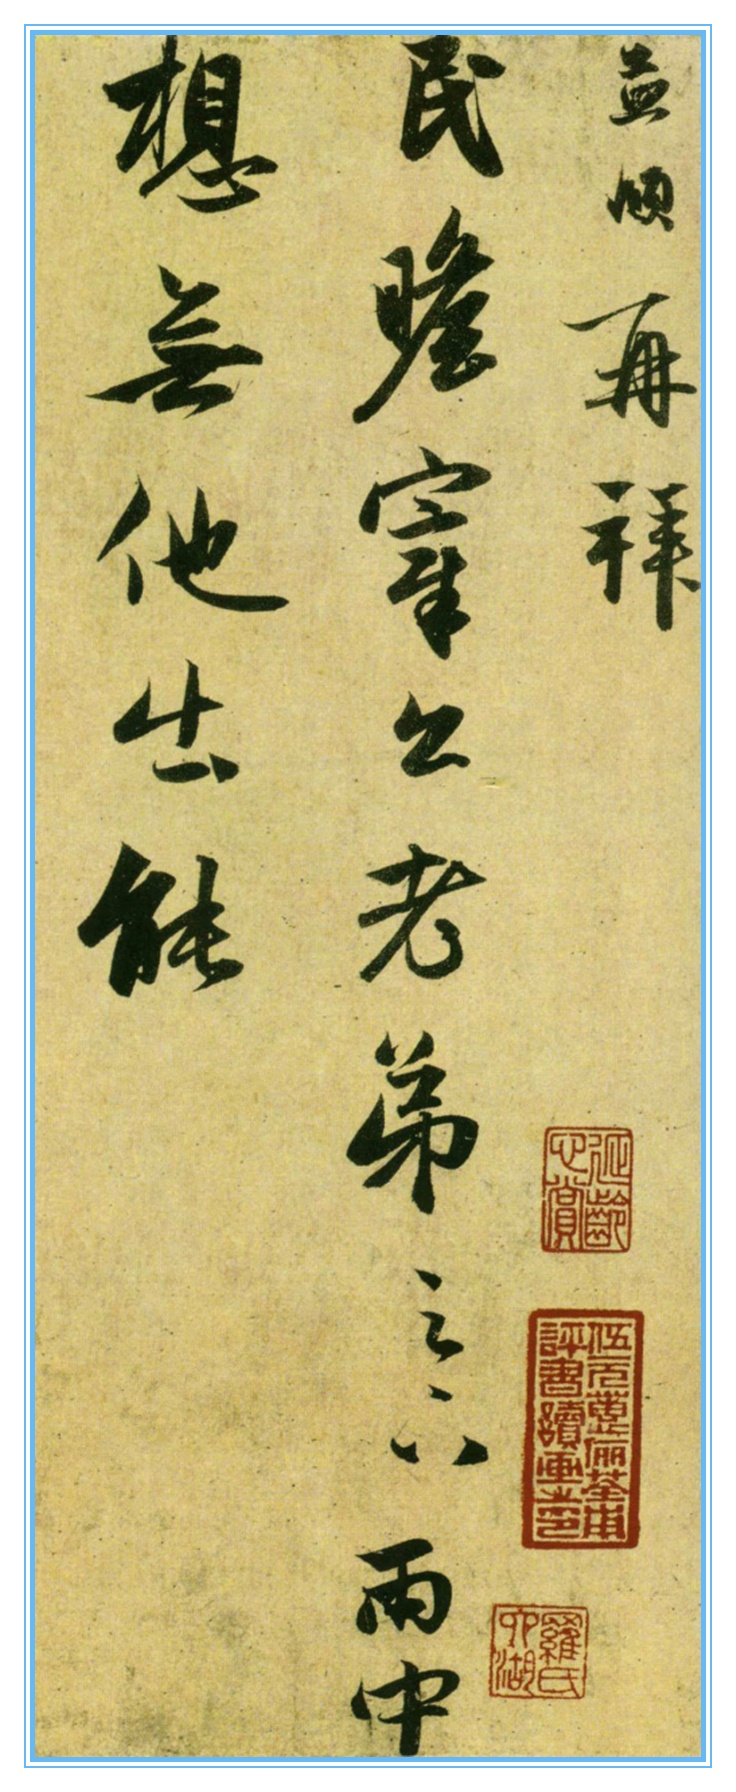 孟頫再拜
民瞻宰公老弟足下雨中
想無他出能
延齡
心賞
伍元蕙儷荃甫
評書讀畫之印
羅氏
六湖